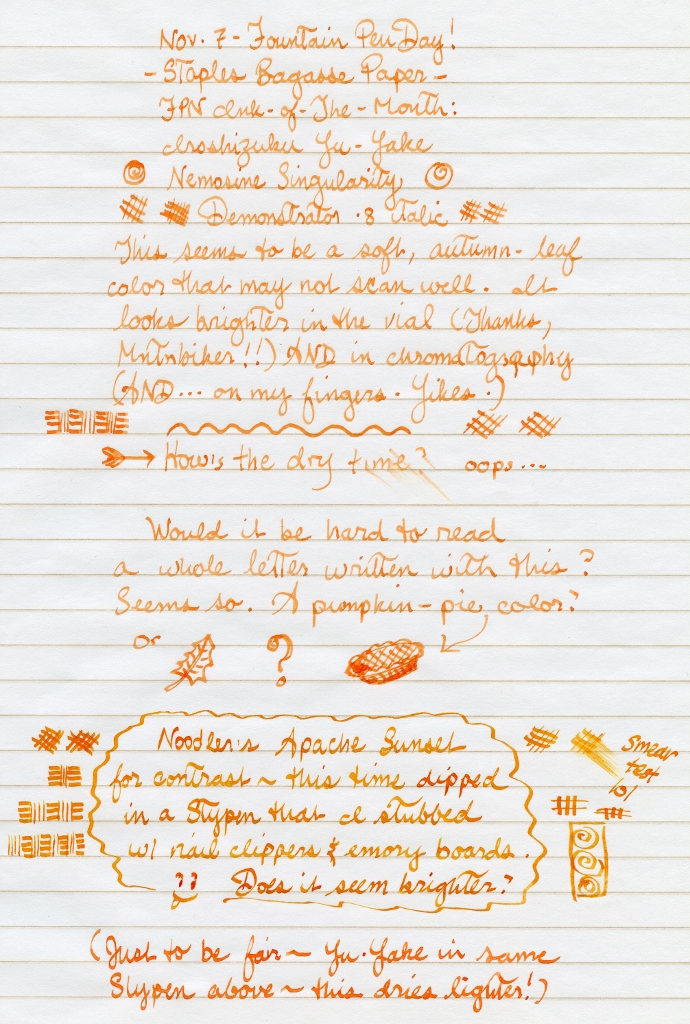 Nov. 7 - Fountain Pen Day!
- Staples Bagasse Paper -
FPN Ink-of-The-Month:
Iroshizuku Yu-Yake
Nemosine Singularity
Demonstrator .8 italic
This seems to be a soft, autumn-leaf
color that may not scan well. It
looks brighter in the vial (Thanks,
Mntnbiker!!) AND in chromatography
(AND... on my fingers. Yikes.)
How's the dry time? oops...
Would it be hard to read
a whole letter written with this?
Seems so. A pumpkin-pie color?
Or ?
Noodler's Apache Sunset
for contrast ~ this time dipped
in a Stypen that I stubbed
w/ nail clippers & emory boards.
?? Does it seem brighter?
Smear
test
lol
(Just to be fair ~ Yu-Yake in same
Stypen above ~ this dries lighter!)